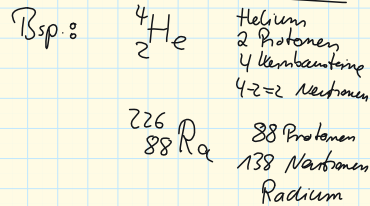 Bsp.: ⁴₂He Helium
2 Protonen
4 Kernbausteine
4-2=2 Neutronen
²²⁶₈₈Ra 88 Protonen
138 Neutronen
Radium